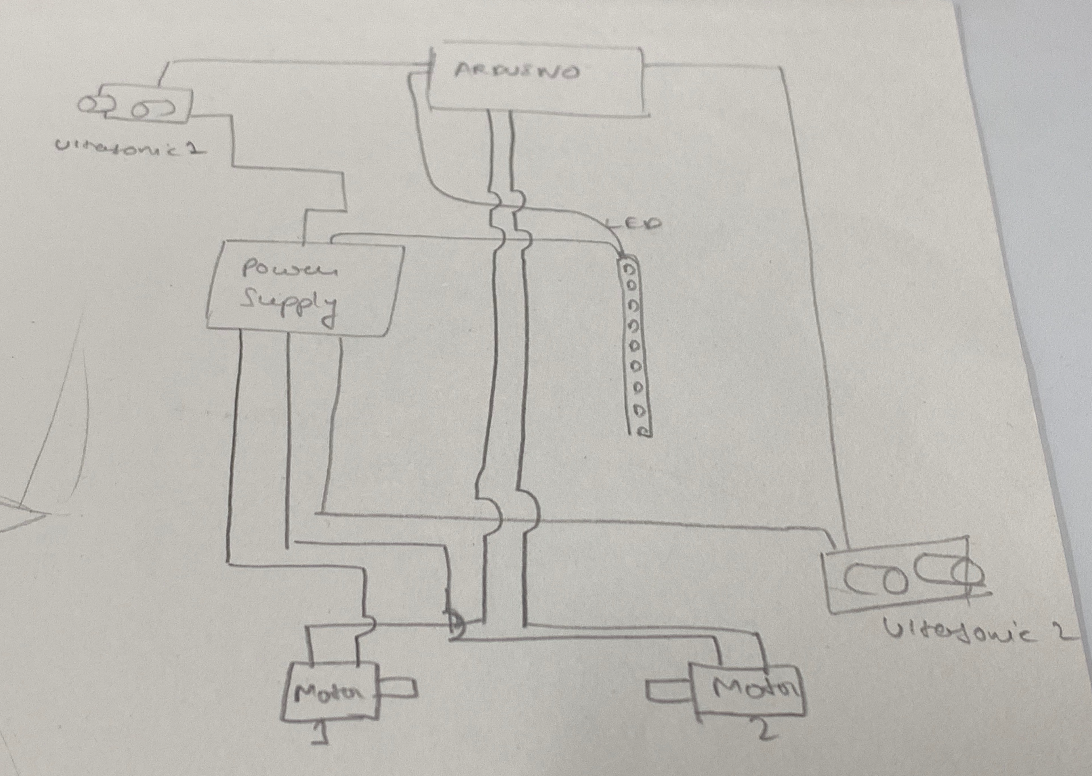 ARDUINO
Ultrasonic 2
LED
Power
Supply
Ultrasonic 2
Motor
1
Motor
2